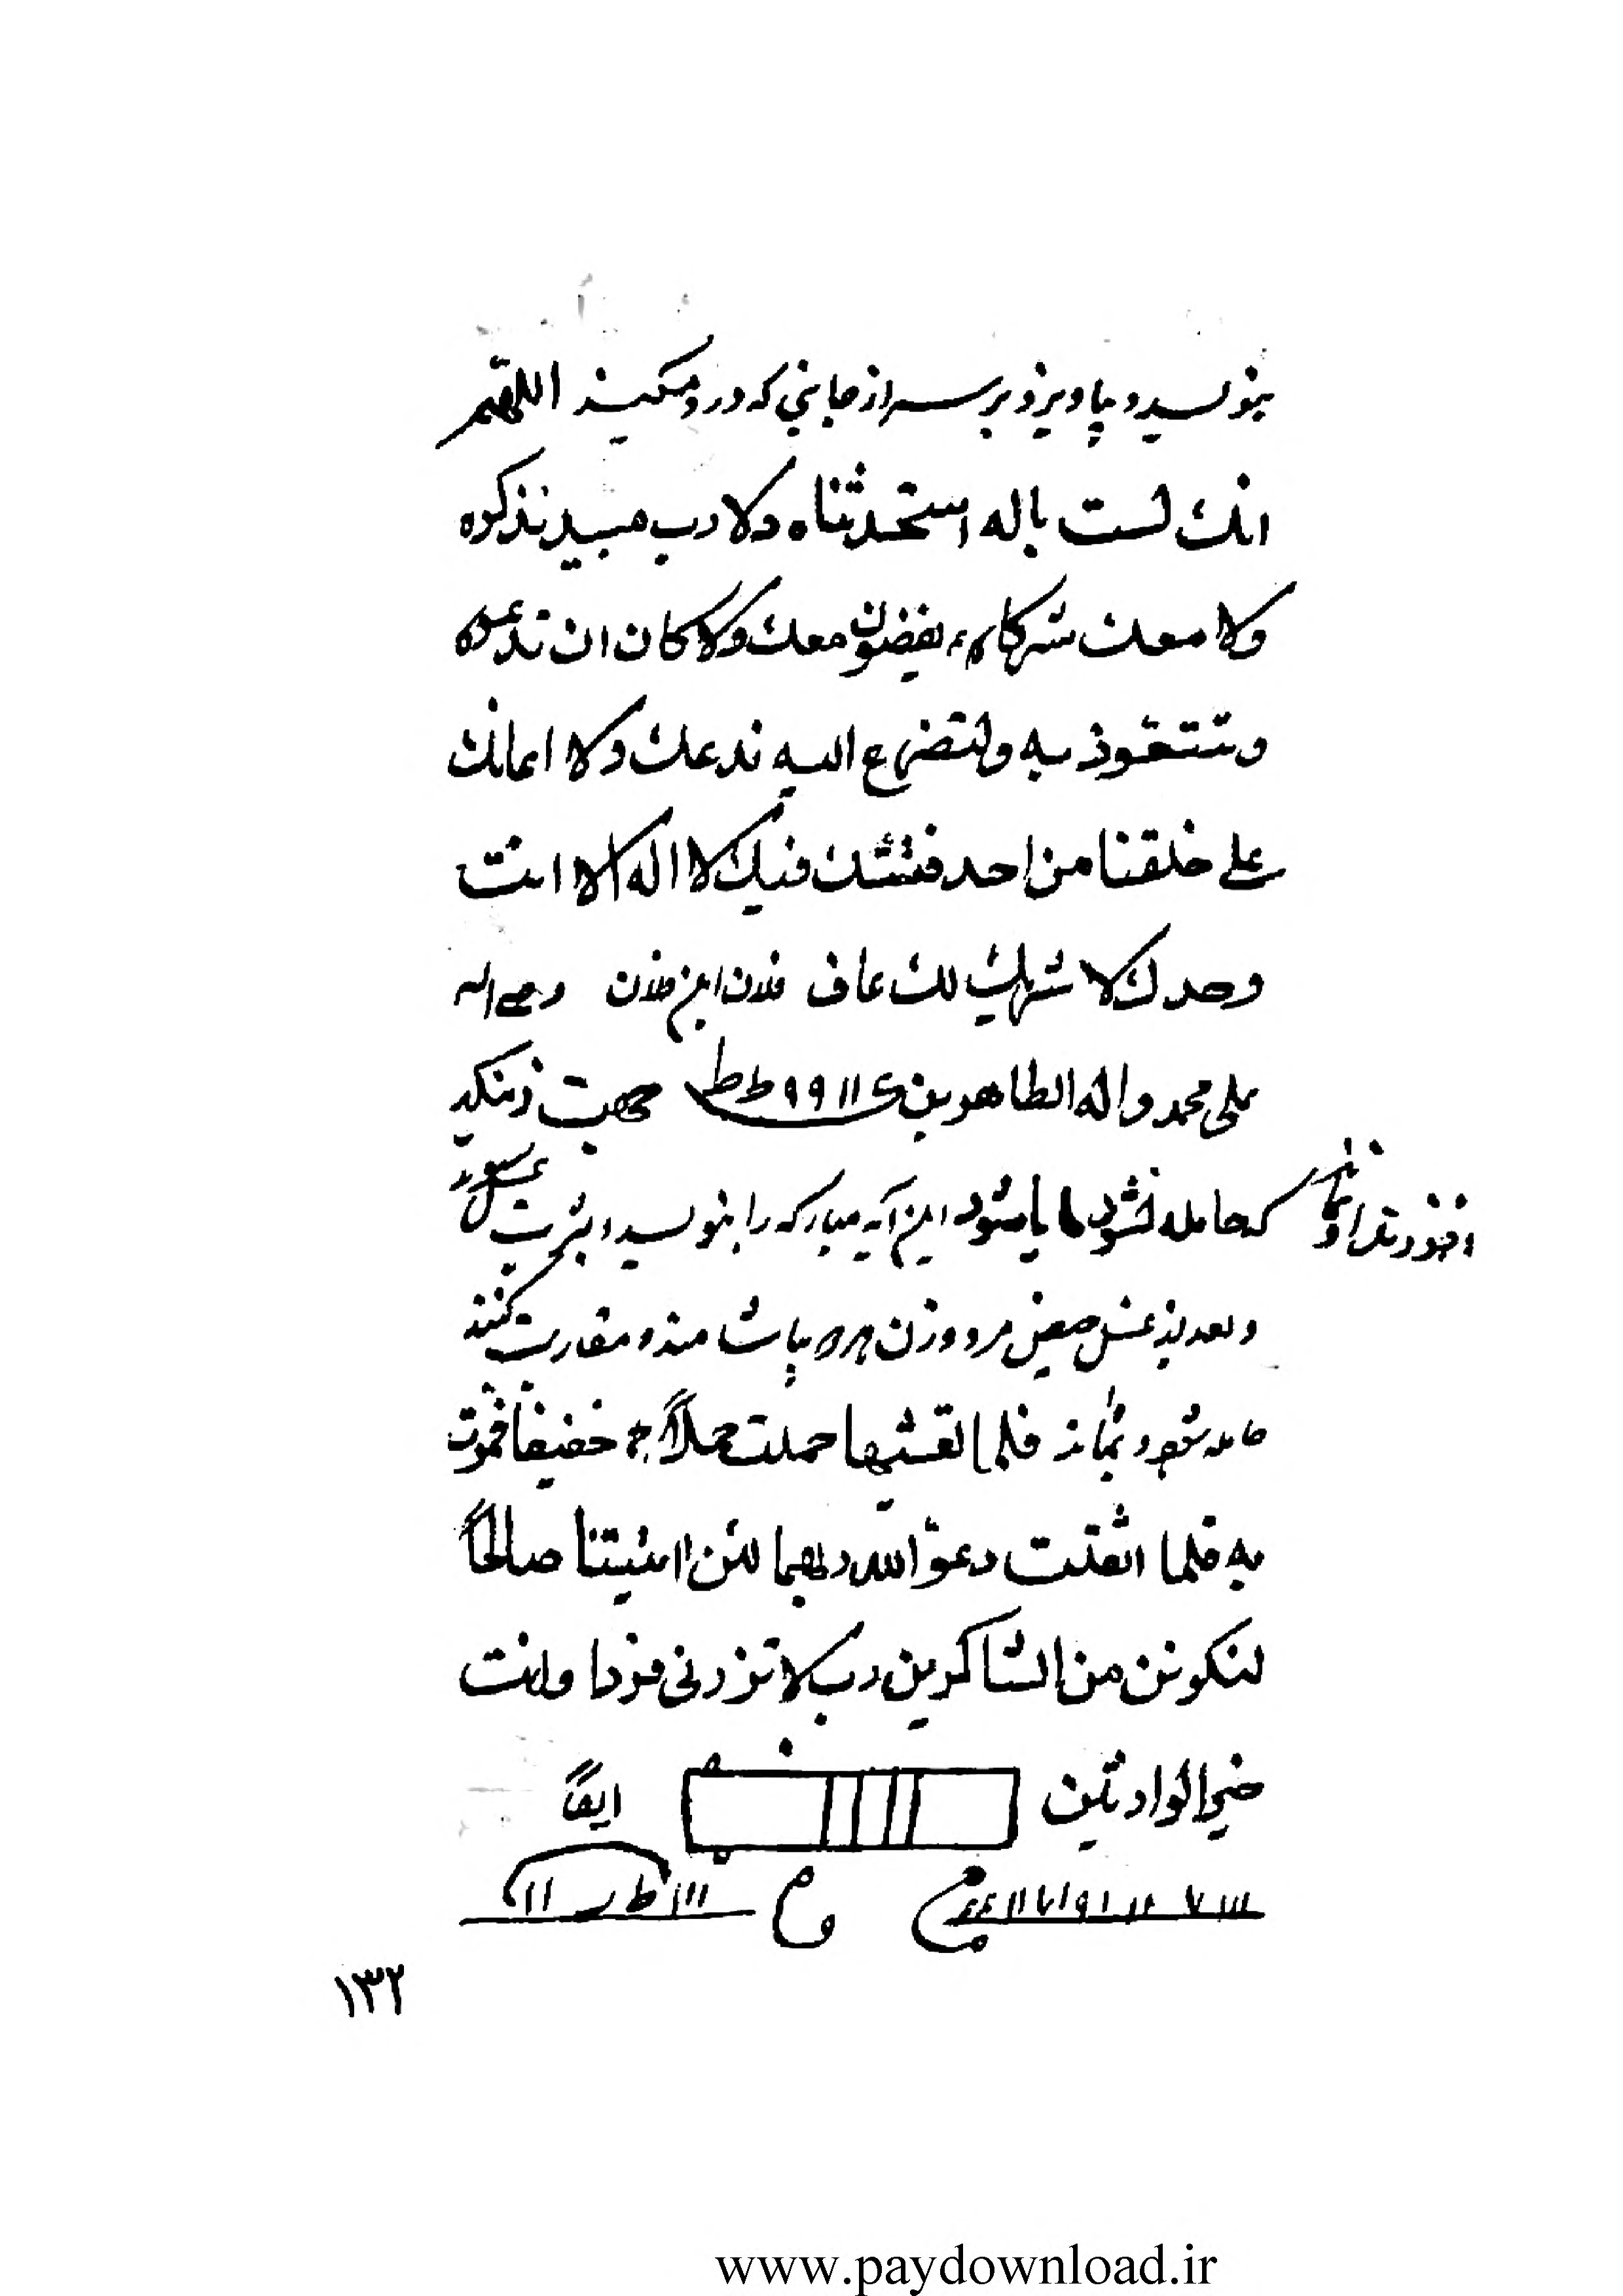 بنویسد و بیاویزد بر سر از جانبی که درد میکند اللهم
انك لست باله استحدثناه ولا رب مبید نذکره
ولا معك شركاء یقضون معك ولا کان ان ندعوه
ونتعوذ به ونتضرع الیه ندعك ولا اعانك
علی خلقنا من احد فنشك فیك لا اله الا انت
وحدك لا شریك لك عاف فلان ابن فلان وصلی اله
علی محمد واله الطاهرین ع ۱۱ ۹۹ ط ط جهت زنیکه
که حامله نشود یا بشود این آیه مبارکه را بنویسد و بشرت
وبعد از غسل حیض مرد و زن بیاشامند و مقاربت کنند
حامله شود و بماند فلما تغشیها حملت حملاً خفیفا فمرت
به فلما اثقلت دعو الله ربهما لئن اتیتنا صالحاً
لنکونن من الشاکرین رب لا تزرنی فردا وانت
خیر الوارثین ایضاً
۱۱۱ ۷ ۱۱ ۱ ۹ ۱ ۷ ۱۱ ۴۴ م
وم ۱۱۱ ط ر ۱۱
۱۳۲
www.paydownload.ir